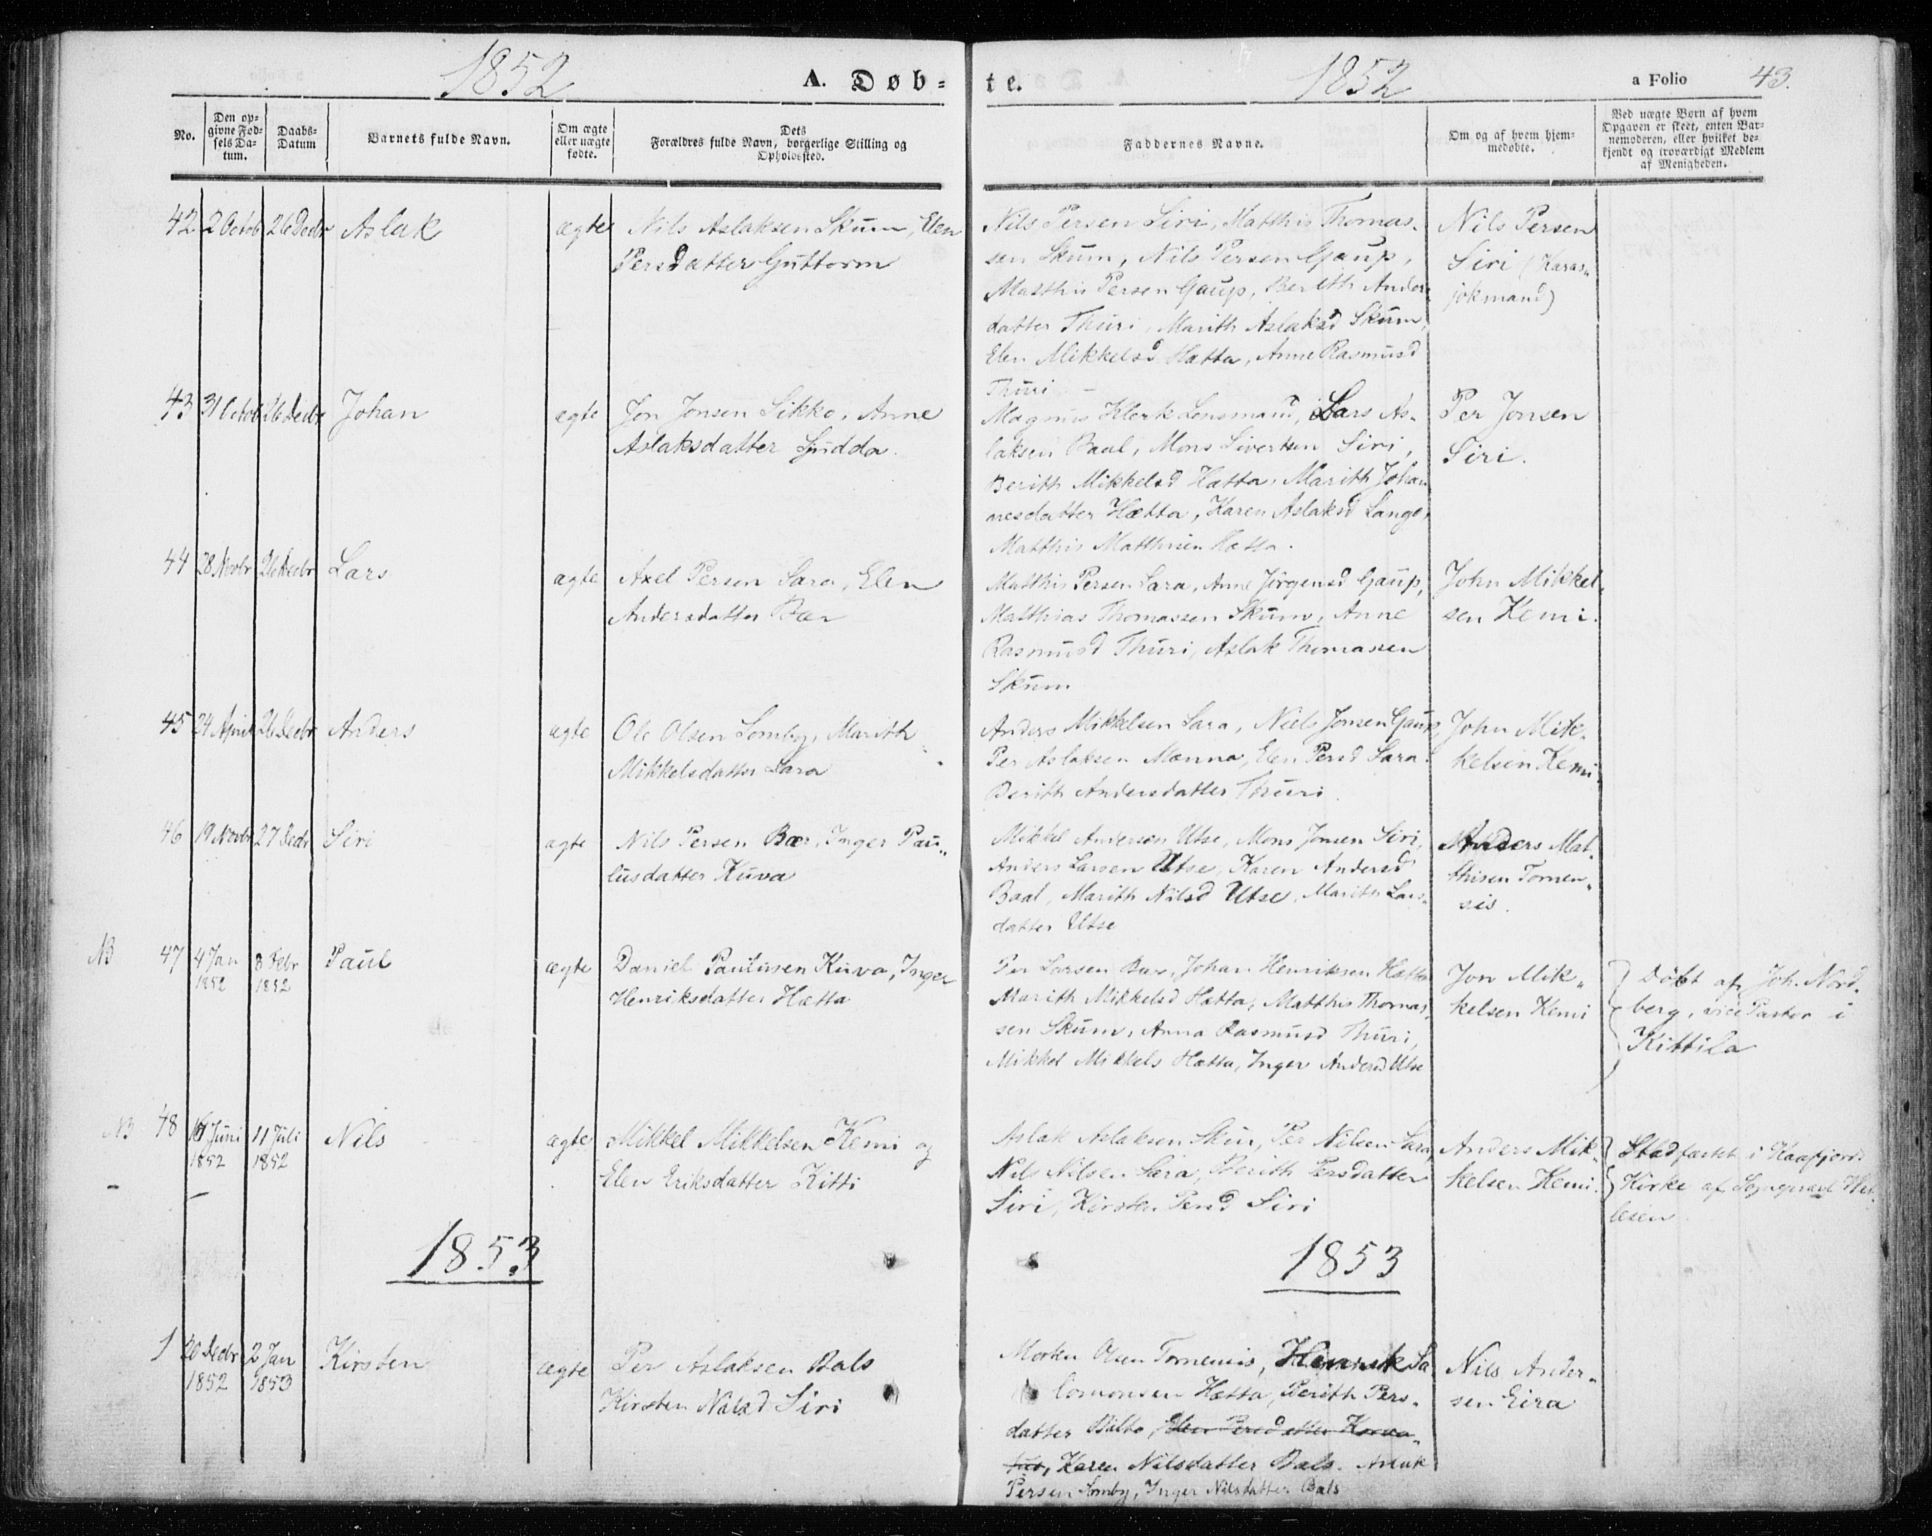 1852
A. Døb-
te.
1852
a Folio 43.
No.
Den op-
givne Fød-
sels Da-
tum.
Daabs-
Datum
Barnets fulde Navn.
Om ægte
eller uægte
fødte.
Dets
Forældres fulde Navn, borgerlige Stilling og
Opholdssted.
Faddernes Navne.
Om og af hvem hjem-
medøbte.
Ved uægte Børn af hvem
Opgaven er skeet, enten Bar-
nemoderen, eller hvilket be-
kjendt og troværdigt Medlem
af Menigheden.
42 2 Octob 26 Decbr Aslak ægte
Nils Aslaksen Skum, Elen
Persdatter Guttorm
Nils Persen Siri, Matthis Thomas-
sen Skum, Nils Persen Gaup,
Matthis Persen Gaup, Berith Anders-
datter Thuri, Marith Aslaksd Skum,
Elen Mikkelsd Hætta, Anne Rasmusd
Thuri
Nils Persen
Siri (Karas-
jokmand)
43 31 Octob 26 Decbr Johan ægte
Jon Jonsen Sikko, Anne
Aslaksdatter Guidda.
Magnus Klerk Lensmand, Lars As-
laksen Baal, Mons Sivertsen Siri,
Berith Mikkelsd Hætta, Marith Johan
nesdatter Hætta, Karen Aslaksd Lango,
Matthis Matthisen Hætta.
Per Jonsen
Siri.
44 28 Novbr 26 Decbr Lars ægte
Axel Persen Sara, Elen
Andersdatter Bær
Matthis Persen Sara, Anne Jörgensd Gaup,
Matthias Thomassen Skum, Anne
Rasmusd Thuri, Aslak Thomassen
Skum
John Mikkel-
sen Kemi.
45 24 April 26 Decbr Anders ægte
Ole Olsen Somby, Marith
Mikkelsdatter Sara
Anders Mikkelsen Sara, Niels Jonsen Gaup,
Per Aslaksen Manna, Elen Persd Sara
Berith Andersdatter Thuri.
John Mik-
kelsen Kemi
46 19 Novbr 27 Decbr Siri ægte
Nils Persen Bær, Inger Pau-
lusdatter Kuva
Mikkel Andersen Utse, Mons Jonsen Siri,
Anders Larsen Utse, Karen Andersd
Baal, Marith Nilsd Utse, Marith Lars-
datter Utse
Anders Mat-
thisen Tornen-
sis.
NB 47 4 Jan 1852 8 Febr 1852 Paul ægte
Daniel Paulusen Kuva, Inger
Henriksdatter Hætta
Per Larsen Bær, Johan Henriksen Hætta
Marith Mikkelsd Hætta, Matthis Thomas-
sen Skum, Anna Rasmusd Thuri,
Mikkel Mikkels Hætta, Inger Andersd Utse
Jon Mik-
kelsen Kemi
Döbt af Joh. Nord-
berg, vice Pastor i
Kittila
NB 48 Juni 1852 11 Juli 1852 Nils ægte
Mikkel Mikkelsen Kemi og
Elen Eriksdatter Kitti
Aslak Aslaksen Per Nilsen Sara,
Nils Nilsen Sara, Berith Persdatter
Siri, Kirsten Persd Siri
Anders Mik-
kelsen Kemi.
Stadfæstet i Kaafjords
Kirke af Sognepræst
lesen
1853
1853
1 20 Decbr 1852 2 Jan 1853 Kirsten ægte
Per Aslaksen Bals
Kirsten Nilsd Siri
Morten Olsen Tornensis, Henrik Sa
lomonsen Hætta, Berith Pers-
datter Balto, Elen Persdatter
Karen Nilsdatter Bals. Aslak
Persen Somby, Inger Nilsdatter Bals
Nils Ander-
sen Eira